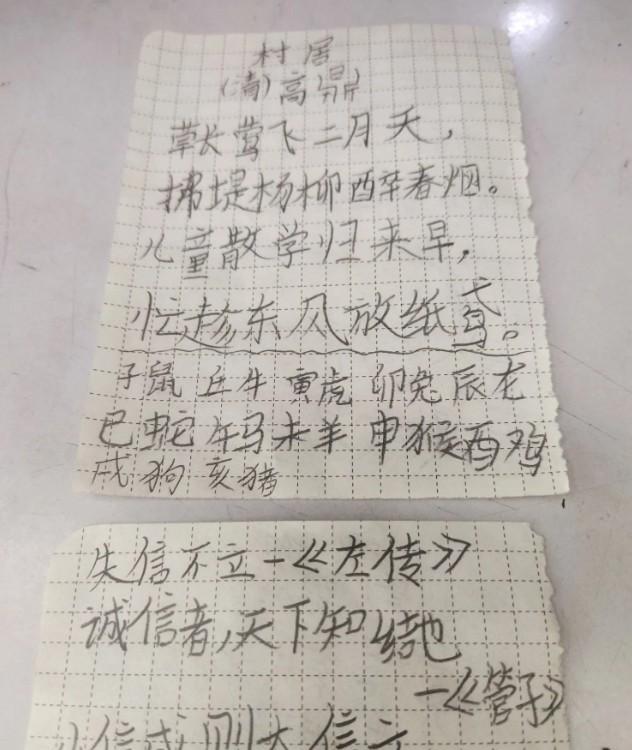 村居
(清)高鼎
草长莺飞二月天，
拂堤杨柳醉春烟。
儿童散学归来早，
忙趁东风放纸鸢。
子鼠 丑牛 寅虎 卯兔 辰龙
巳蛇 午马 未羊 申猴 酉鸡
戌狗 亥猪
失信不立—《左传》
诚信者，天下之结也
—《管子》
小信成则大信立